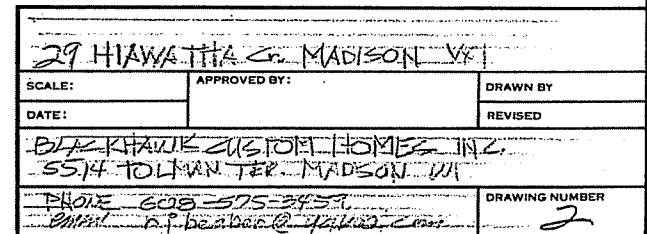 29 HIAWATHA Cir. MADISON WI
SCALE: APPROVED BY: DRAWN BY
DATE: REVISED
BLACKHAWK CUSTOM HOMES INC.
5514 TOLMAN TER. MADISON WI
PHONE 608-575-3459 DRAWING NUMBER
email @yahoo.com 2